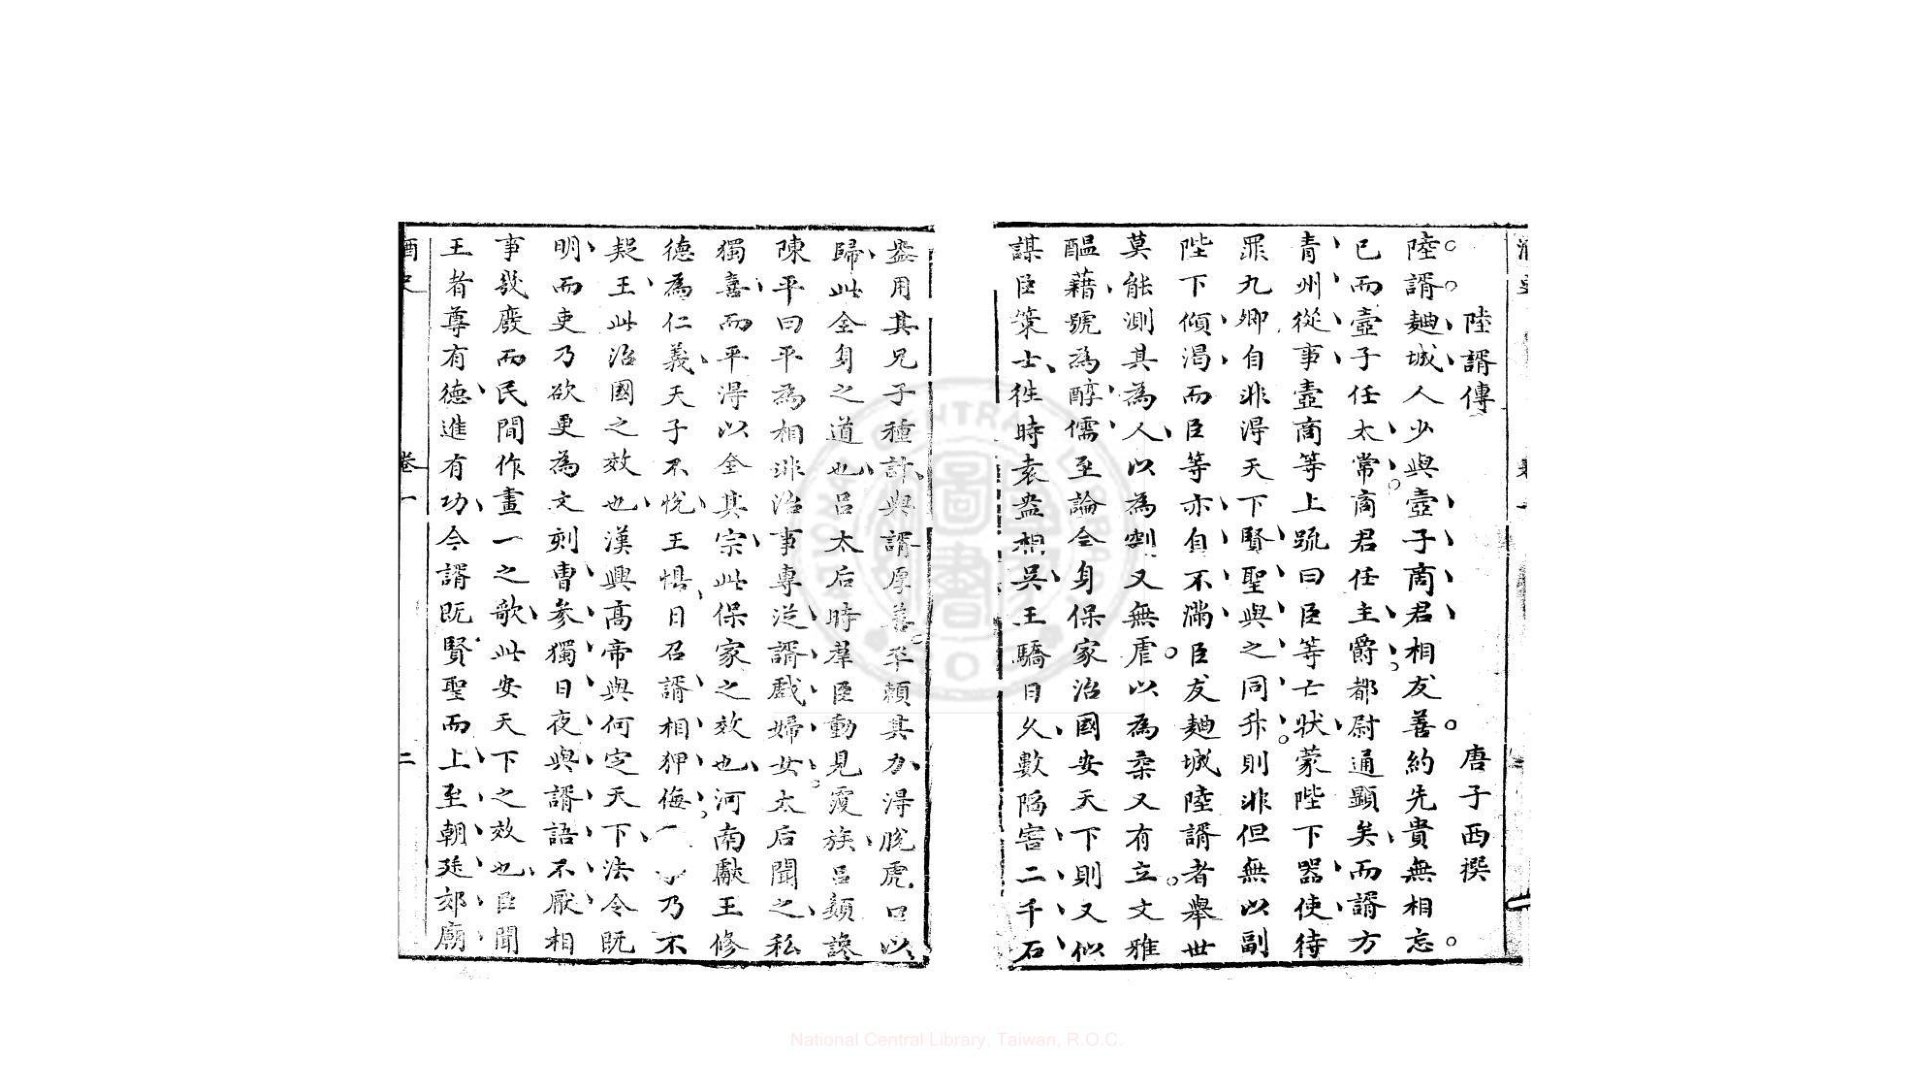 陸諝傳
唐子西撰
陸諝麯城人少與壺子商君相友善約先貴無相忘
已而壺子任太常商君任主爵都尉通顯矣而諝方
青州從事壺商等上䟽曰臣等亡狀蒙陛下器使待
罪九卿自非得天下賢聖與之同升則非但無以副
陛下傾渴而臣等亦自不滿臣友麯城陸諝者舉世
莫能測其為人以為剛又無虐以為柔又有立文雅
醖藉號為醇儒至論全身保家治國安天下則又似
謀臣策士徃時袁盎相吴王驕日乆數陷害二千石
盎用其兄子種計與諝厚善卒頼其力得脫虎口以
歸此全身之道也吕太后時羣臣動見覆族吕嬃讒
陳平曰平為相非治事專從諝戲婦女太后聞之私
獨喜而平得以全其宗此保家之效也河南獻王修
德為仁義天子不悅王惧日召諝相狎侮乃不
疑王此治國之效也漢興髙帝與何定天下法令既
明而吏乃欲更為文刻曹參獨日夜與諝語不厭相
事𤼵廢而民間作畫一之歌此安天下之效也臣聞
王者尊有德進有功今諝既賢聖而上至朝廷郊廟
酒史
卷一
二
National Central Library, Taiwan, R.O.C.